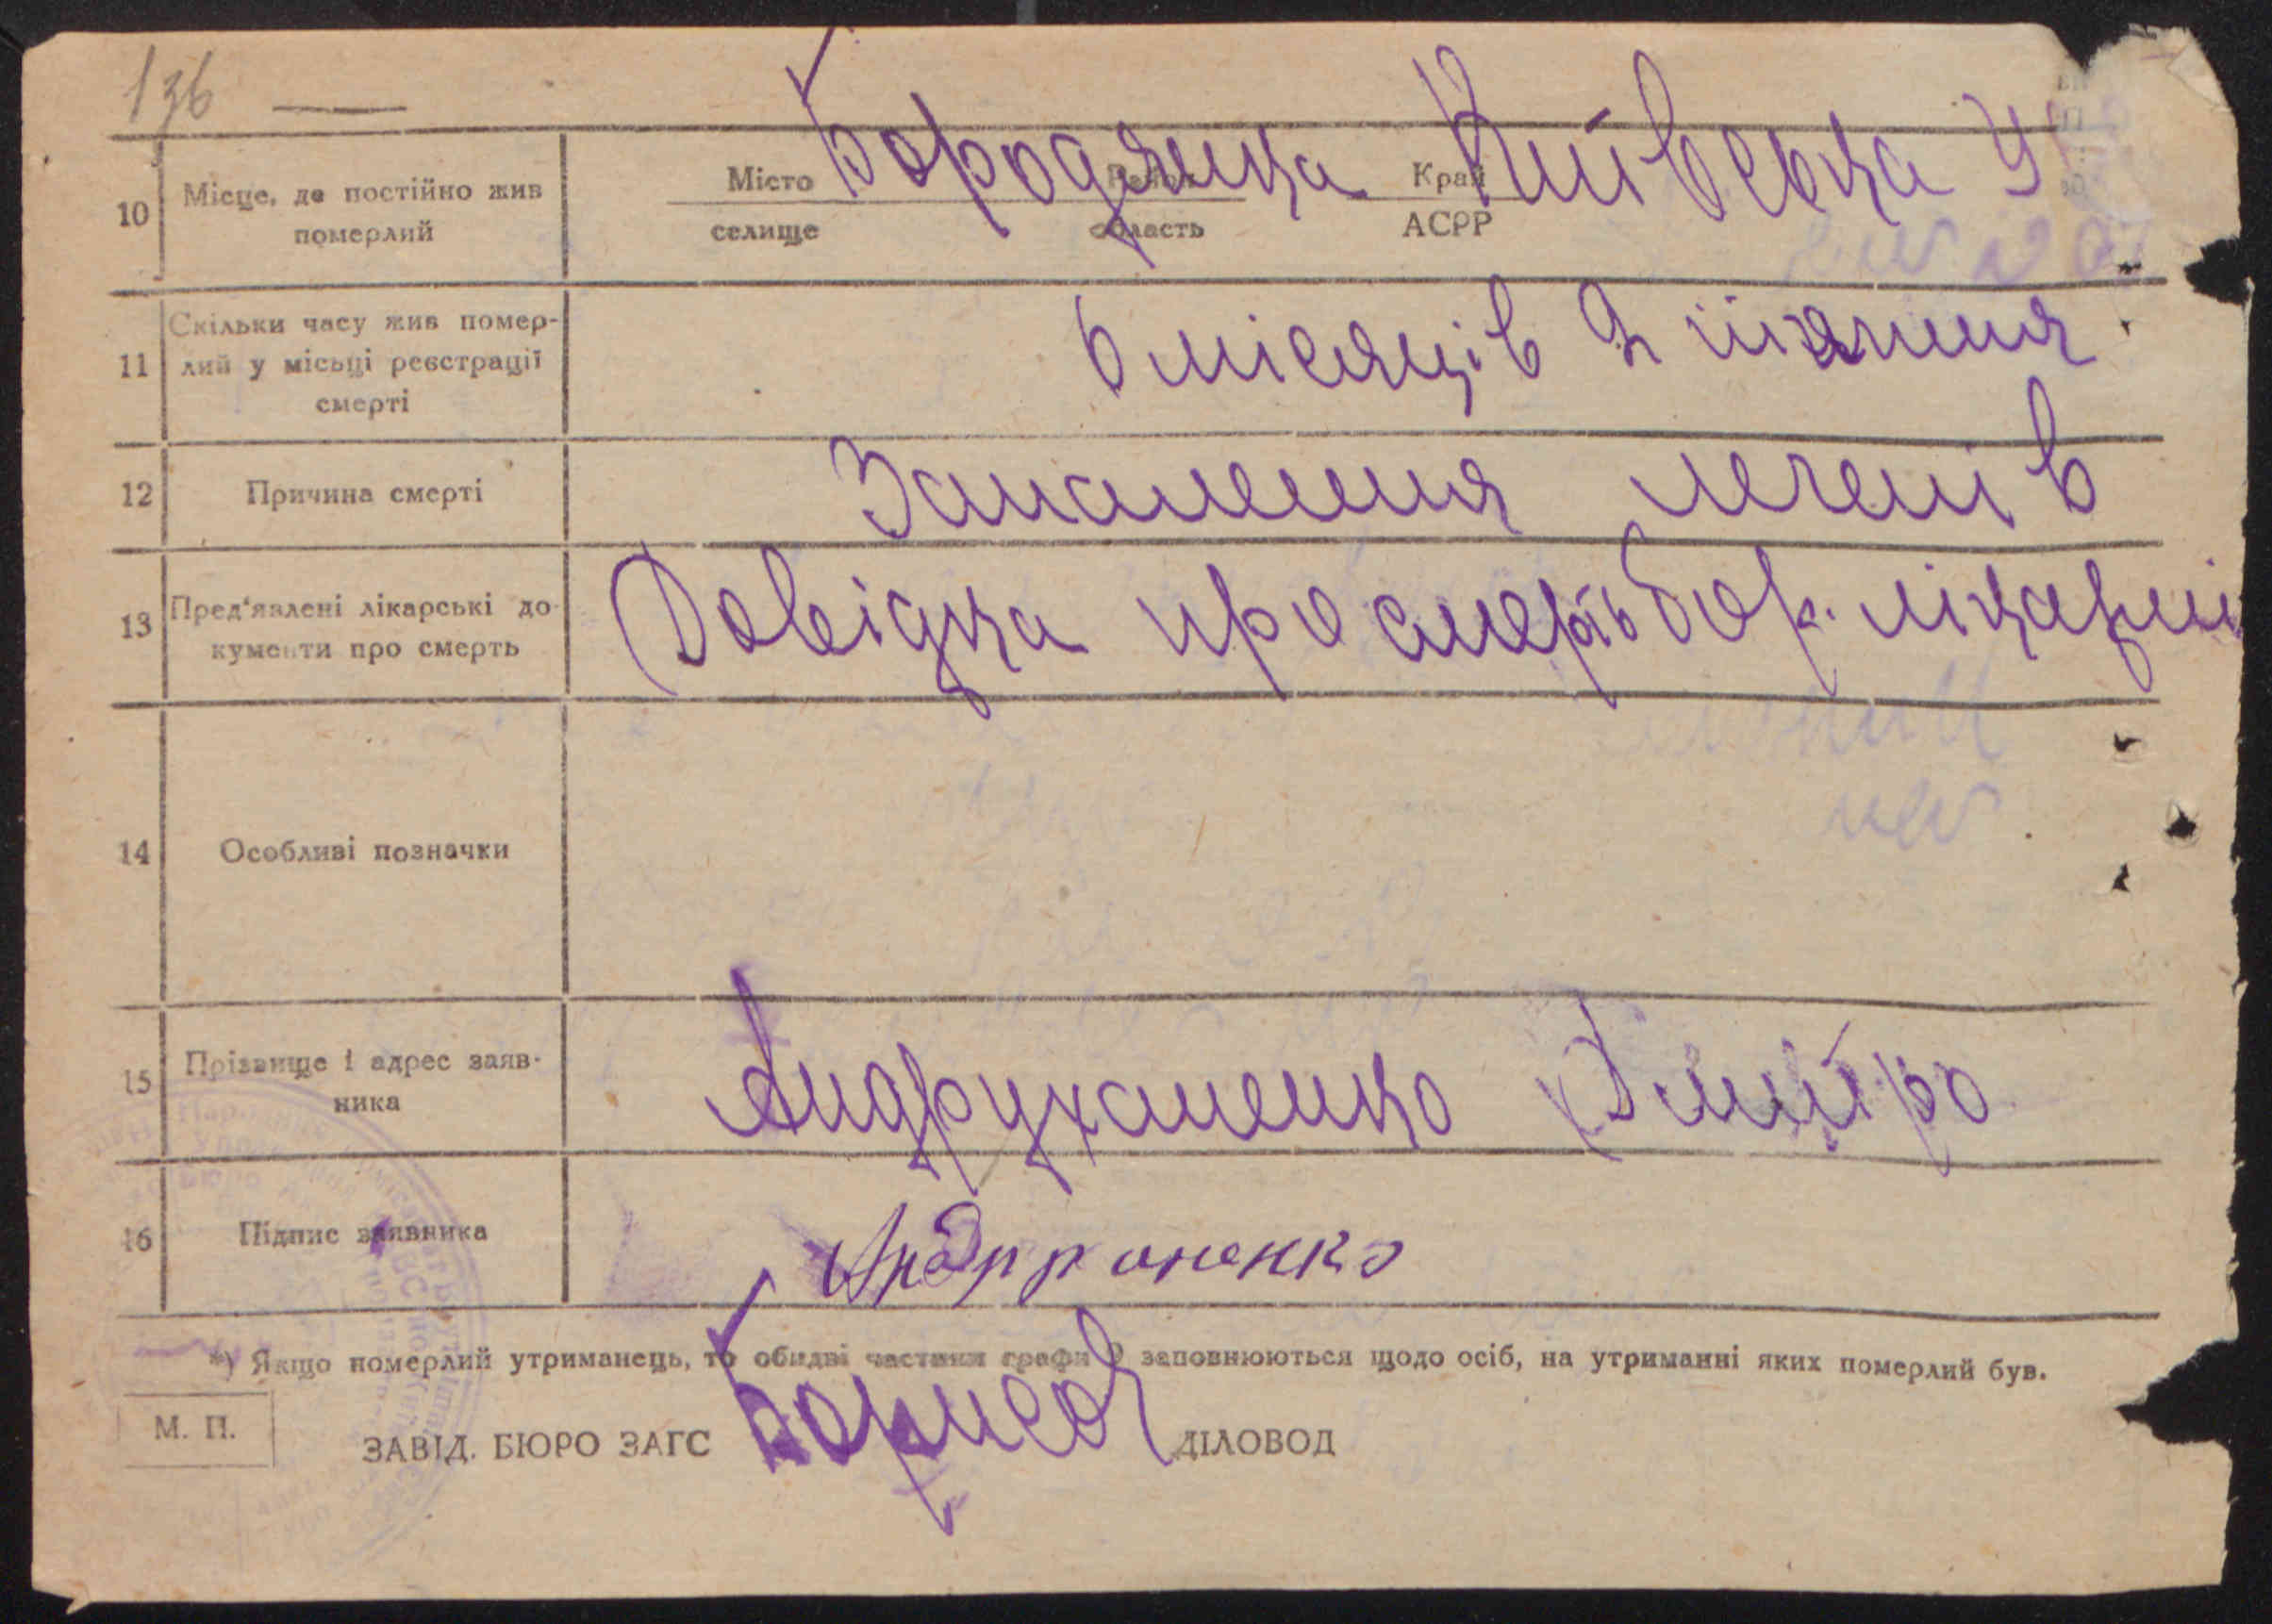 136
10 Місце, де постійно жив померлий
Місто селище Район область Край АСРР
Бородянка Київська У
11 Скільки часу жив помер-
лий у місьці реєстрації
смерті
6 місяців 2 тижня
12 Причина смерті
Запалення легенів
13 Пред'явлені лікарські до-
кументи про смерть
Довідка про смерть Бор. лікарні
14 Особливі позначки
15 Прізвище і адрес заяв-
ника
Андруханенко Дмитро
16 Підпис заявника
*) Якщо померлий утриманець, то обидві частини графи 9 заповнюються щодо осіб, на утриманні яких померлий був.
М. П.
ЗАВІД. БЮРО ЗАГС ДІЛОВОД